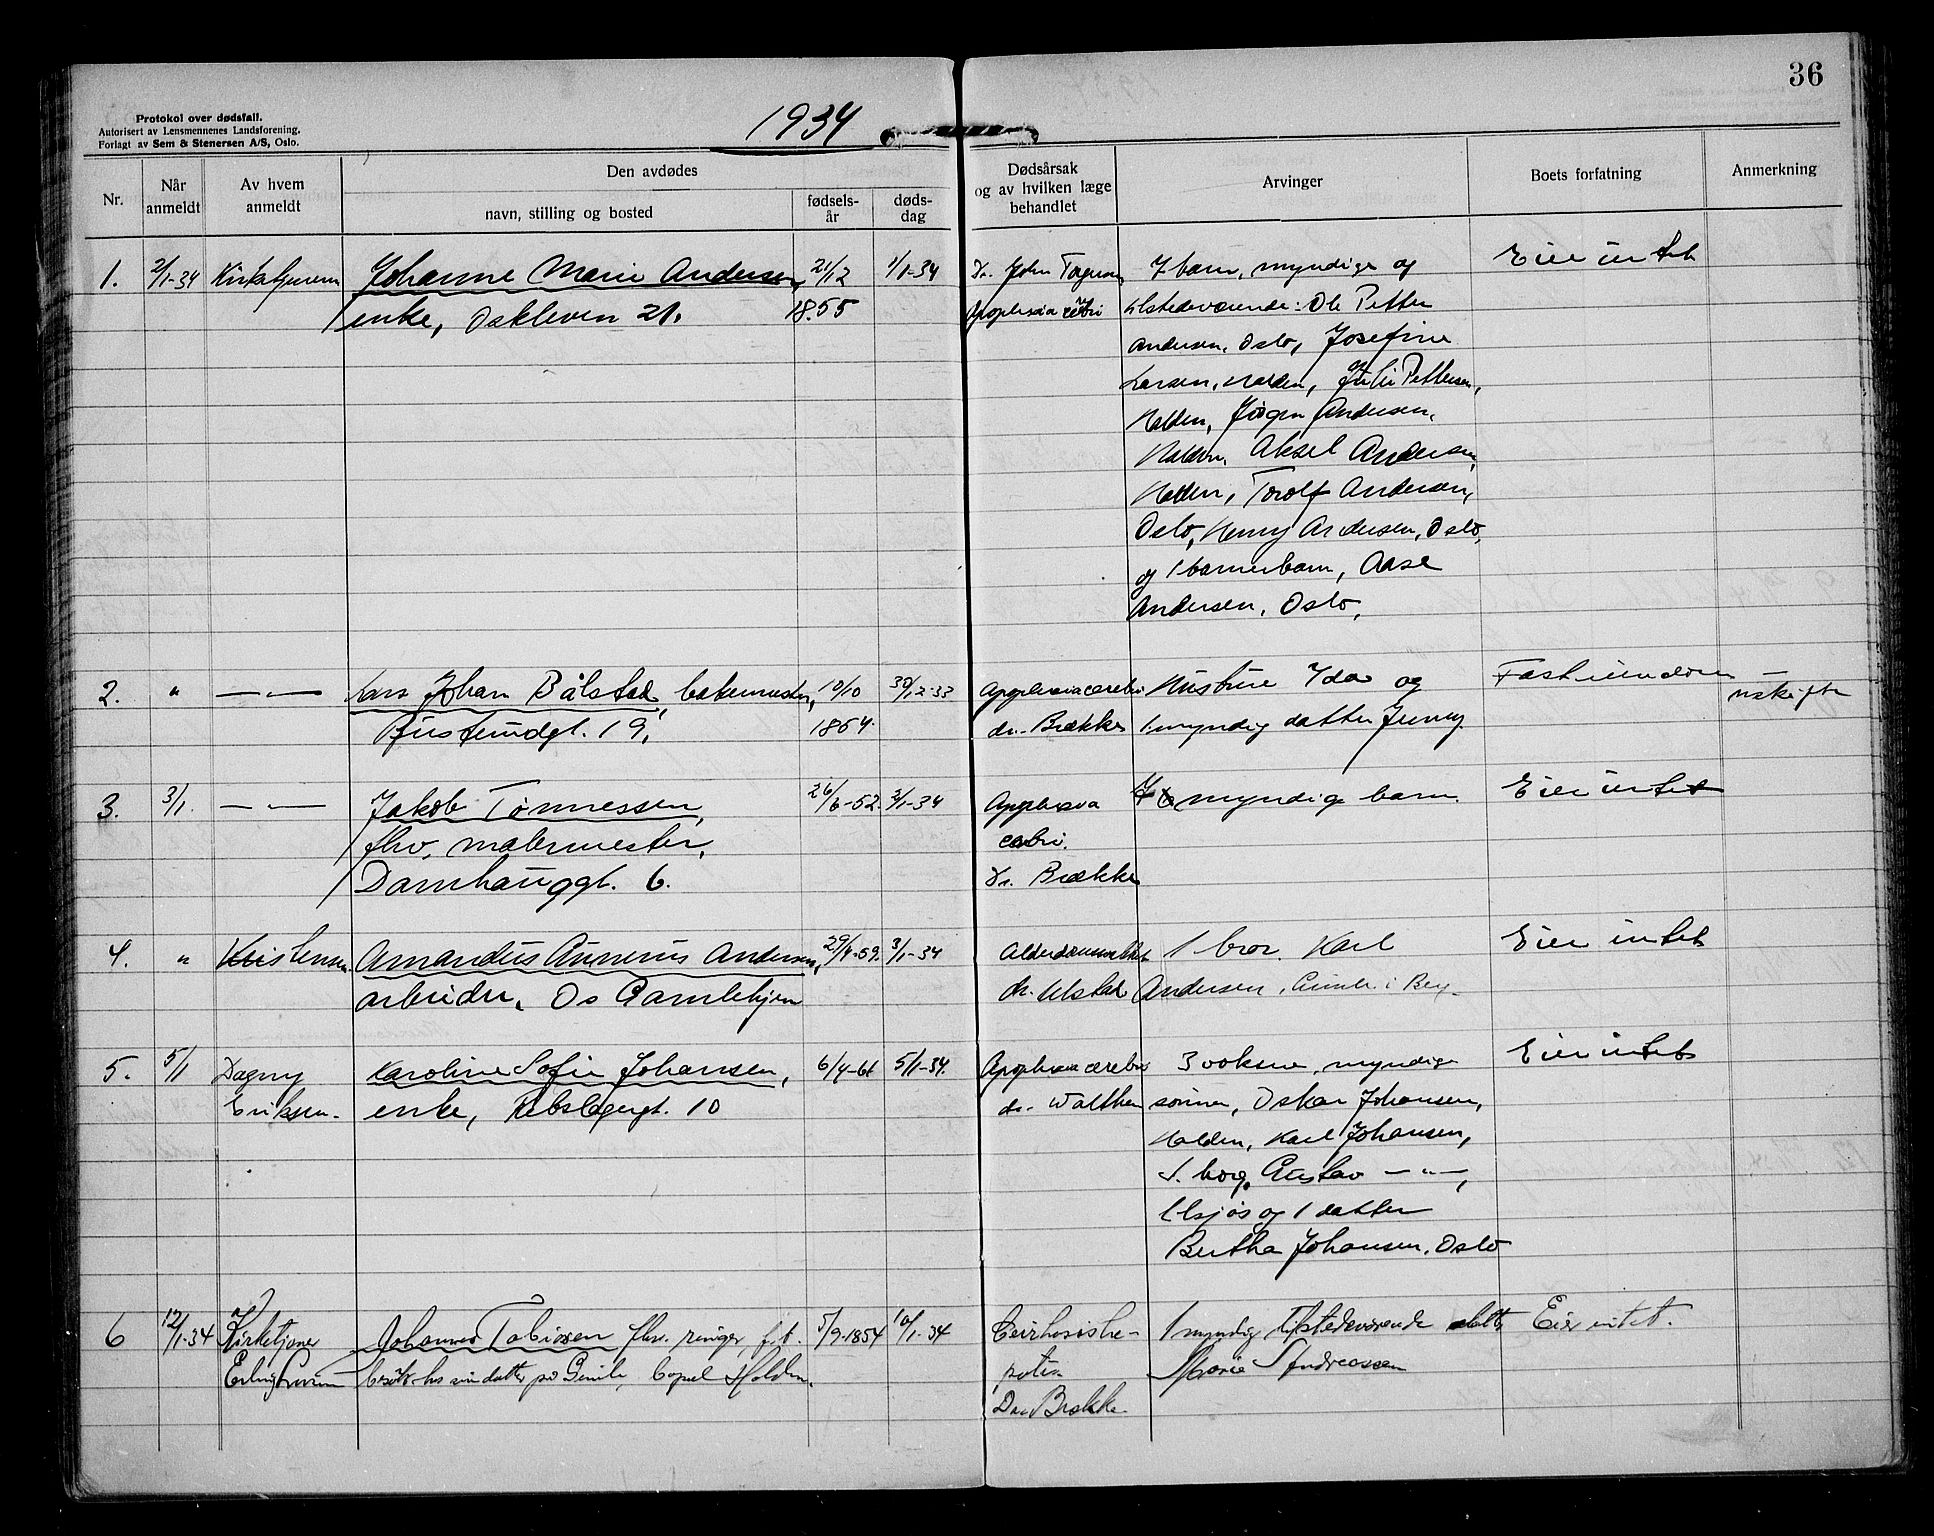 36
Protokol over dødsfall.
Autorisert av Lensmennenes Landsforening.
Forlagt av Sem & Stenersen A/S, Oslo.
1934
Nr.
Når anmeldt
Av hvem anmeldt
Den avdødes
navn, stilling og bosted
fødsels-år
døds-dag
Dødsårsak og av hvilken læge behandlet
Arvinger
Boets forfatning
Anmerkning
1. 2/1-34 Johanne Marie Andersen, 21/12 1/1-34 Dr. John 7 barn, myndige og Eier intet
enke, Oskleven 21. 1855 Apoplexia cerebri tilstedeværende: Ole Petter
Andersen, Oslo, Josefine
Larsen, Halden, Pettersen,
Halden, Jörgen Andersen,
Halden, Aksel Andersen,
Halden, Torolf Andersen,
Oslo, Henry Andersen, Oslo,
og 1 barnebarn, Aase
Andersen, Oslo,
2. " — " — Lars Johan Bålstad, bakermester, 10/10 30/12-33 Apoplexia cerebri Hustrue Ida og Fast eiendom
Busterudgt. 19, 1854. dr. Brække 1 myndig datter Jenny. uskifte
3. 3/1. — " — Jakob Tönnessen, 26/6-52. 2/1-34 Apoplexia 7 myndige barn. Eier intet
fhv. malermester, cerebri.
Damhauggt. 6. Dr. Brække
4. " Kristensen Amandus Andersen, 29/4-59. 3/1-34 1 bror. Karl Eier intet
arbeider, Os Gamlehjem dr. Ulstad Andersen, Gimle i Berg
5. 5/1 Dagny Karoline Sofie Johansen, 6/4-61 5/1-34. Apoplexia cerebri 3 voksne, myndige Eier intet
Eriksen. enke, Rebslagergt. 10 dr. Walther sönner, Oskar Johansen,
Halden, Karl Johansen,
S. borg, Gustav — " —,
og 1 datter
Bertha Johansen, Oslo
6 12/1-34 Kirketjener Johannes Tobiassen fhv. ringer, 5/9-1854 10/1-34 Cirrhosis he- 1 myndig tilstedeværende datter Eier intet.
hos sin datter på Gimle, Halden. patis Marie Andreassen
Dr. Brække